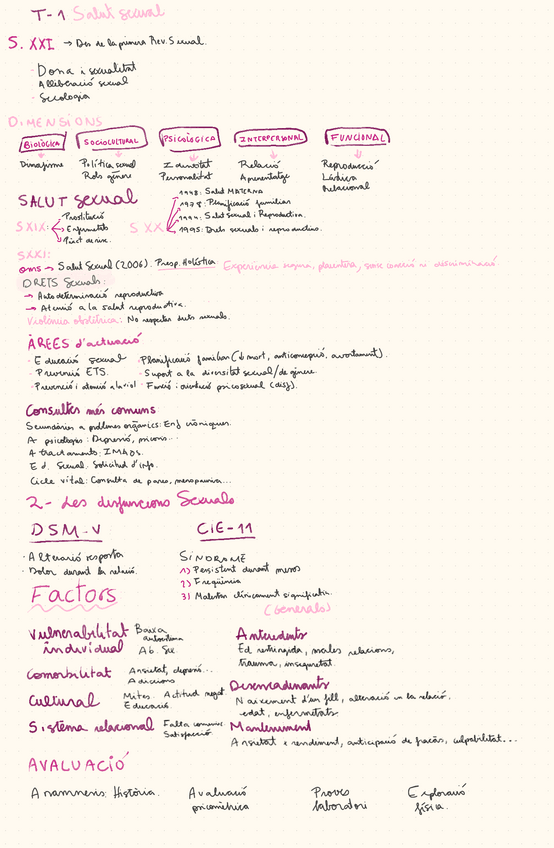 T-1 Salut sexual
S. XXI → Des de la primera Rev. Sexual.
- Dona i sexualitat
Alliberació sexual
- Sexologia
DIMENSIONS
BIOLÒGICA SOCIOCULTURAL PSICOLÒGICA INTERPERSONAL FUNCIONAL
Dimorfisme Política sexual Identitat Relació Reproducció
Rols gènere Personalitat Aprenentatge Lúdica
Relacional
SALUT Sexual
SXIX: Prostitució
Enfermetats
SXX 1948: Salut MATERNA
1978: Planificació familiar
1994: Salut sexual i Reproductiva.
1995: Drets sexuals i reproductius.
SXXI:
OMS → Salut Sexual (2006). Persp. Holística Experiencia segura, placentera, sense coerció ni discriminació.
DRETS Sexuals:
→ Autodeterminació reproductiva
→ Atenció a la salut reproductiva.
Violència obstètrica: No respectar drets sexuals.
ÀREES d'actuació
· Educació sexual · Planificació familiar (, anticoncepció, avortament).
· Prevenció ETS. · Suport a la diversitat sexual/de gènere.
· Prevenció i atenció a la viol · Funció i orientació psicosexual (disf).
Consultes més comuns
Secundàries a problemes orgànics: Enf cròniques.
A psicològics: Depressió, psicosis...
A tractaments: IMAOS.
Ed. Sexual. Solicitud d'info.
Cicle vital: Consulta de pares, menopausia...
2- Les disfuncions Sexuals
DSM-V CIE-11
· Alteració resposta SÍNDROME
· Dolor durant la relació. 1) Persistent durant mesos
2) Freqüència
3) Malestar clínicament significatiu.
Factors
(Generals)
Vulnerabilitat individual Baixa autoestima
Ab. Sex.
Antecedents
Ed restringida, males relacions,
trauma, inseguretat.
Comorbilitat Ansietat, depressió...
Adiccions
Desencadenants
Naixement d'un fill, alteració en la relació.
edat, enfermetats
Cultural Mites. Actitud negat.
Educació.
Sistema relacional Falta comunic
Satisfacció
Manteniment
Ansietat x rendiment, anticipació de fracàs, culpabilitat...
AVALUACIÓ
Anamnesis: Història. Avaluació psicomètrica Proves laboratori Exploració física.